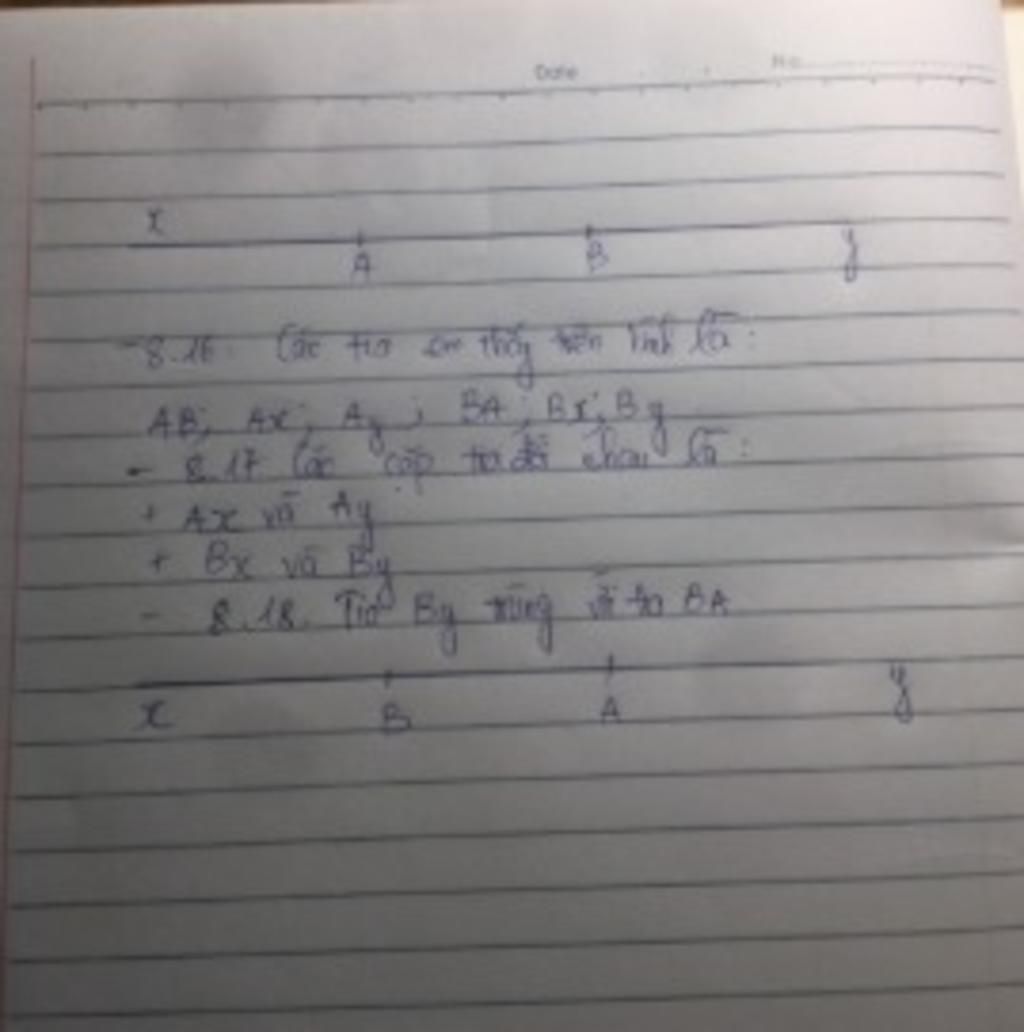 Date No.
x
A B y
- 8.16. Các tia em thấy trên hình là:
AB; Ax; Ay; BA; Bx; By
- 8.17 Các cặp tia đối nhau là:
+ Ax và Ay
+ Bx và By
- 8.18. Tia By trùng với tia BA
B A y
x